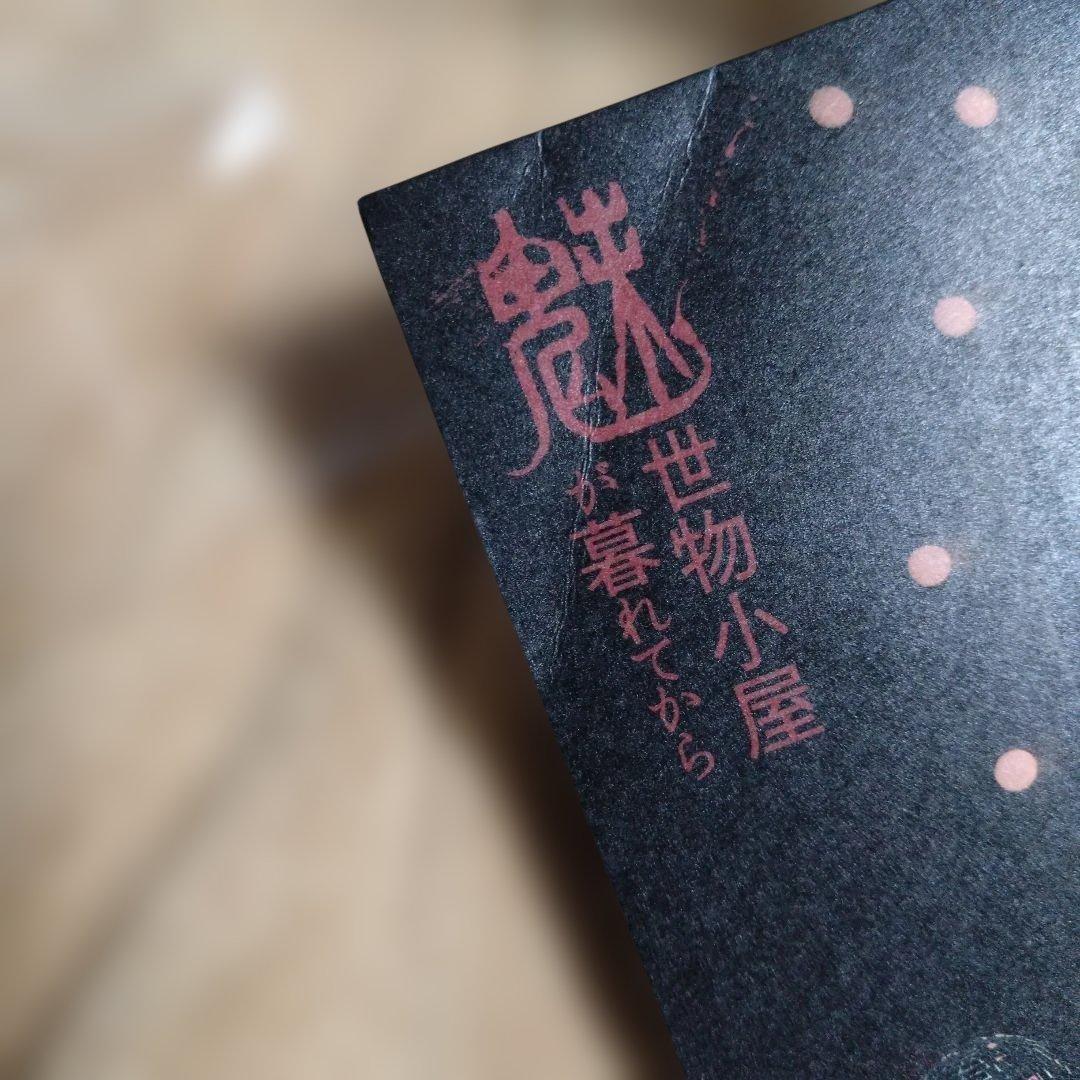 魅世物小屋
が暮れてから